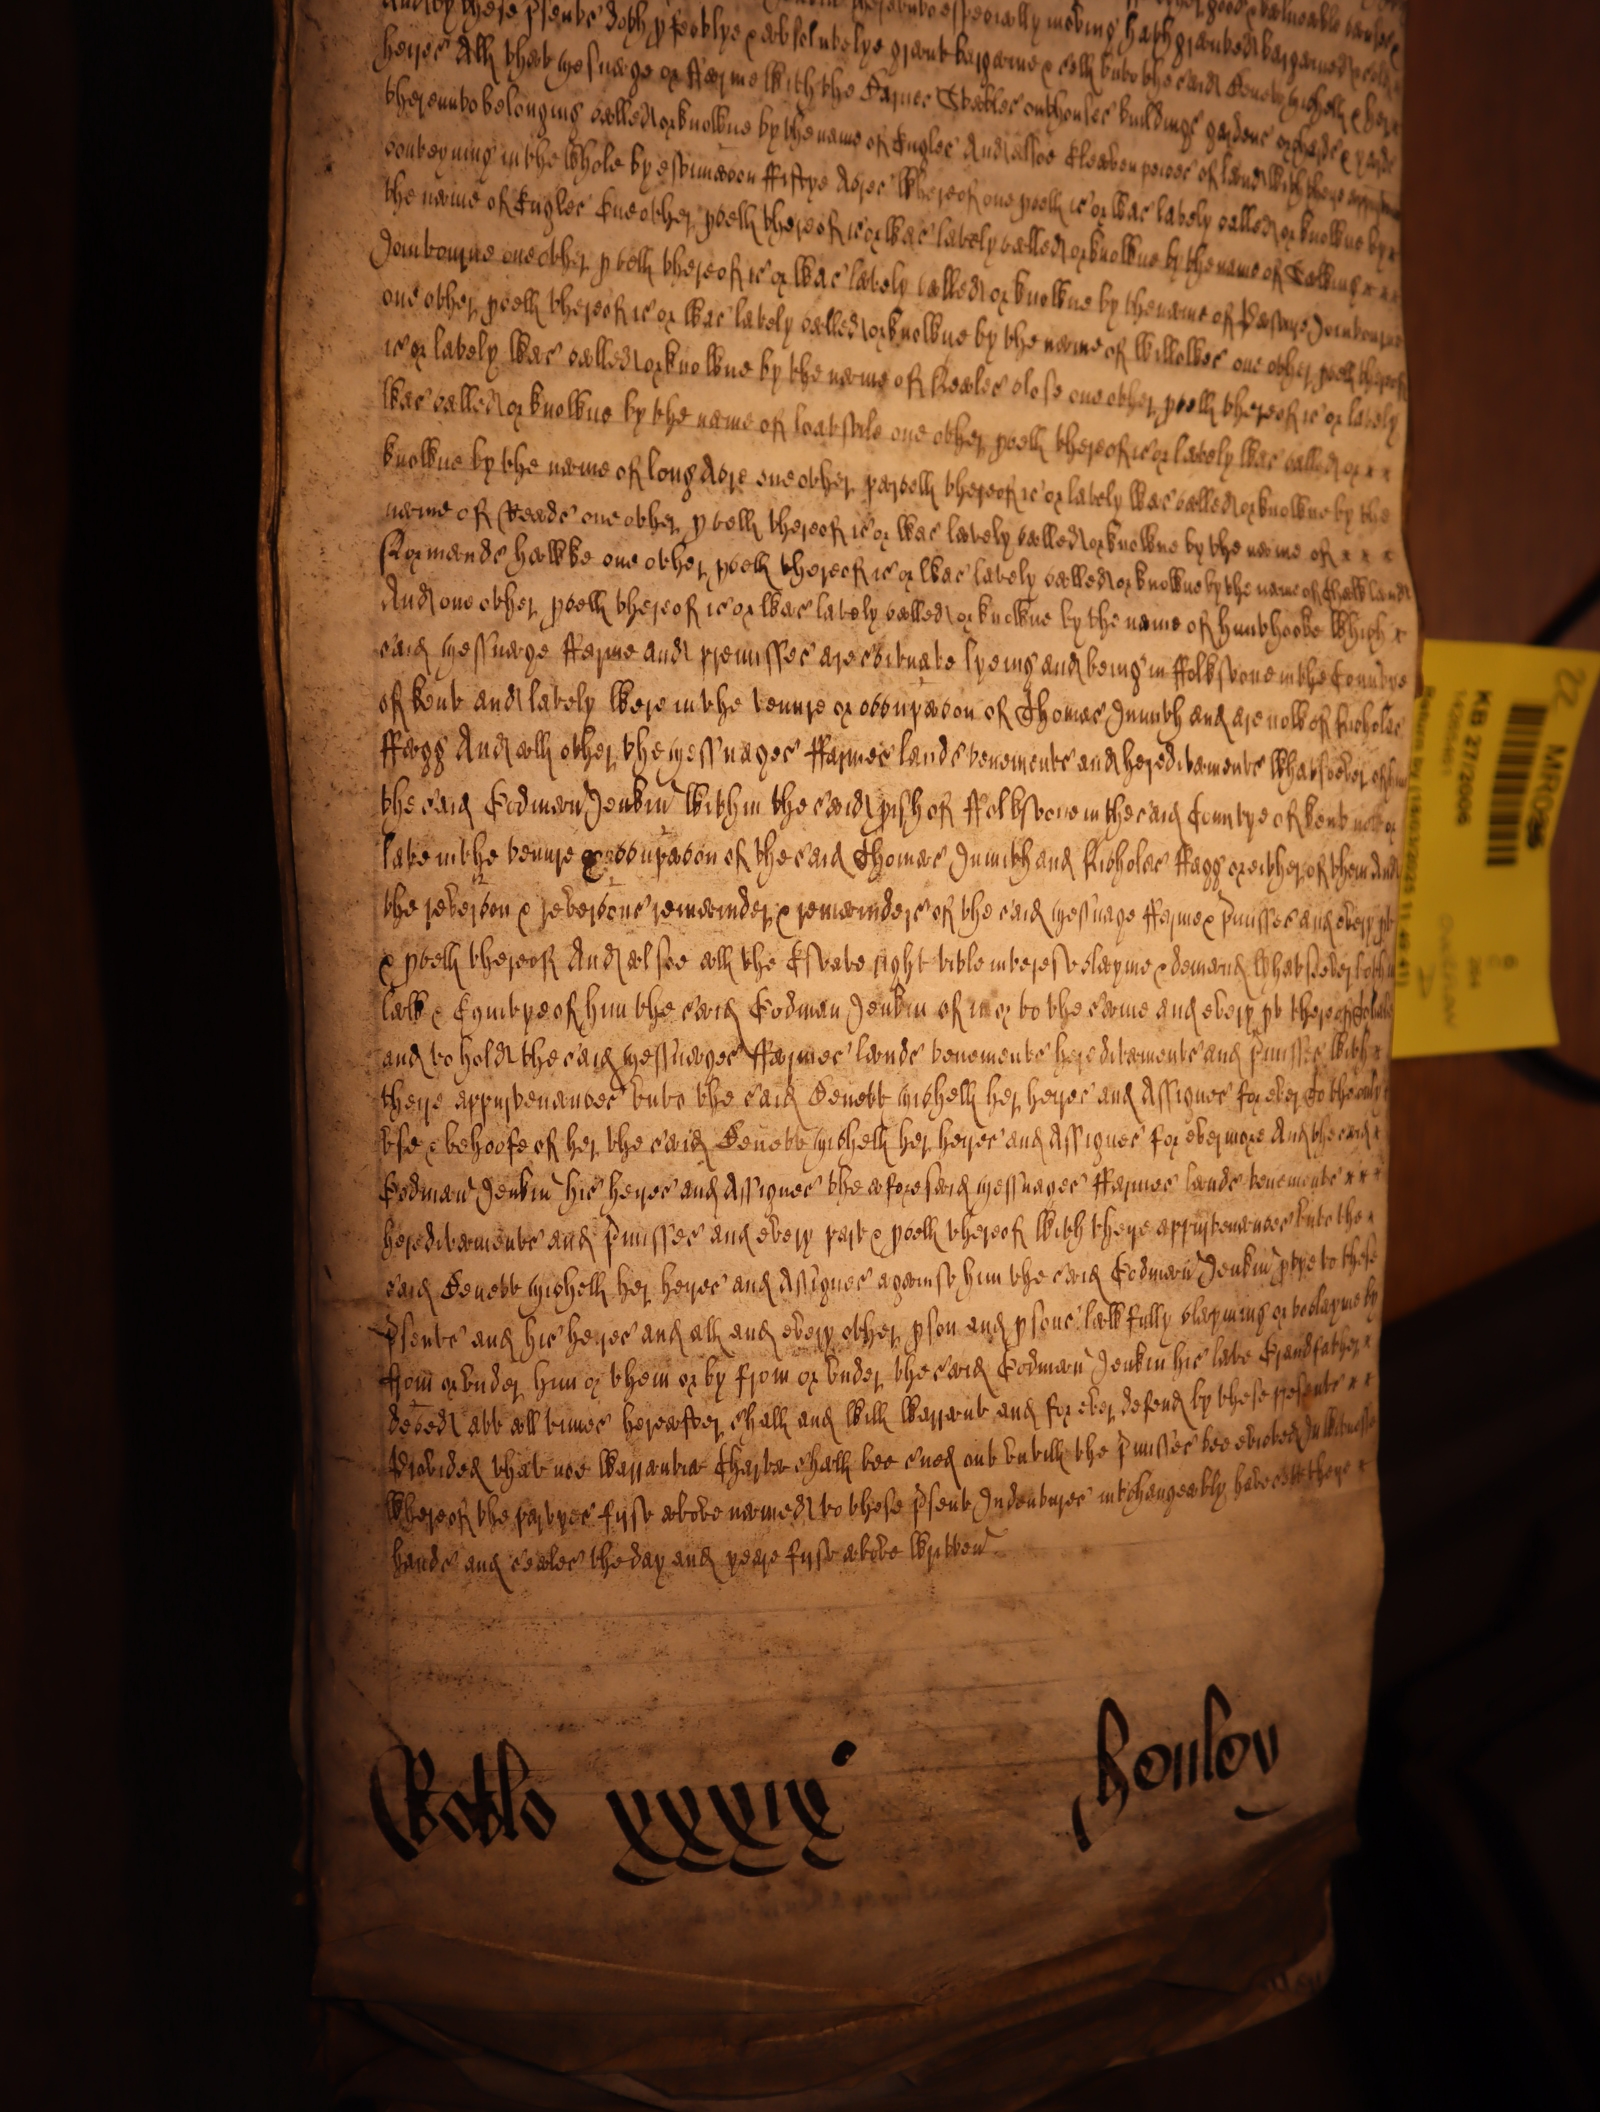 And by these psents doth pfectlye & absolutelye graunt bargaine & sell unto the said Benett Mighell & her
heires All that Messuage or Farme With the Barnes Stables outhouses buildings gardens orchards & yards
thereunto belonging called or knowne by the name of Engles And alsoe Eleaven peices of land With theire appurtenances
conteyning in the Whole by estimacon Fiftye Acres Whereof one pcell is or Was lately called or knowne by
the name of Engles One other pcell thereof is or Was lately called or knowne by the name of
Jointourne one other pcell thereof is or Was lately called or knowne by the name of Pasture Jointourne
one other pcell thereof is or Was lately called or knowne by the name of Willowes one other pcell thereof
is or lately Was called or knowne by the name of Reales close one other pcell thereof is or lately
Was called or knowne by the name of one other pcell thereof is or lately Was called or
knowne by the name of long Acre one other parcell thereof is or lately Was called or knowne by the
name of Reads one other pcell thereof is or Was lately called or knowne by the name of
Normands hawke one other pcell thereof is or Was lately called or knowne by the name of Chalkland
And one other pcell thereof is or Was lately called or knowne by the name of hunthooke Which
said Messuage Farme and premisses are scituate lyeing and being in Folkstone in the Countye
of Kent and lately Were in the tenure or occupacon of Thomas Inmith and are now of Nicholas
Fagg And all other the Messuages Farmes lands tenements and hereditaments Whatsoever of him
the said Edman Jenkin Within the said pish of Folkstone in the said Countye of Kent now or
late in the tenure or occupacon of the said Thomas Inmith and Nicholas Fagg or either of them And
the revercon & revercons remainder & remainders of the said Messuage Farme & pmisses and every pt
& pcell thereof And alsoe all the Estate right title interest clayme & demand Whatsoever both in
law & Equitye of him the said Edman Jenkin of in or to the same and every pt thereof To have
and to hold the said Messuages Farmes lands tenements hereditaments and pmisses With
theire appurtenances unto the said Benett Mighell her heires and Assignes for ever To the only
use & behoofe of her the said Benett Mighell her heires and Assignes for evermore And the said
Edman Jenkin his heires and Assignes the aforesaid Messuages Farmes lands tenements
hereditaments and pmisses and every part & pcell thereof With theire appurtenances unto the
said Benett Mighell her heires and Assignes against him the said Edman Jenkin ptye to these
psents and his heires and all and every other pson and psons lawfully clayming or to clayme by
from or under him or them or by from or under the said Edman Jenkin his late Grandfather
deced att all times hereafter shall and Will Warrant and for ever defend by these presents
Provided that noe Warrantia Charta shall bee sued out untill the pmisses bee evicted In Witnesse
Whereof the partyes first above named to these psent Indentures interchangeably have sett theire
hands and seales the day and yeare first above Written
Rotlo xxxix
Henley
22
MR026
KB 27/2006